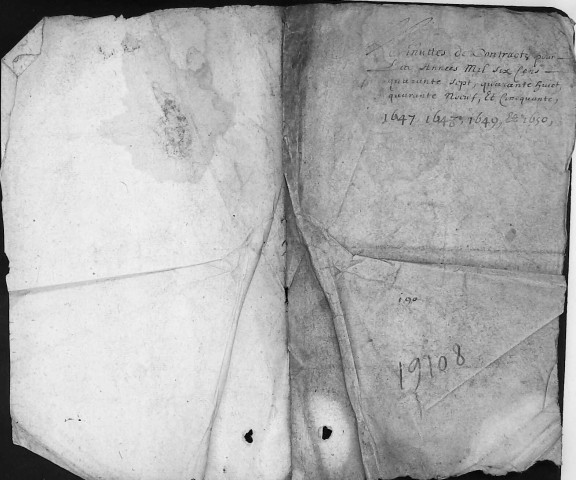 Minuttes de Contracts pour
Les Années Mil six Cens
quarante sept, quarante huict,
quarante Neuf, Et Cinquante,
1647, 1648, 1649, Et 1650,
190
19108